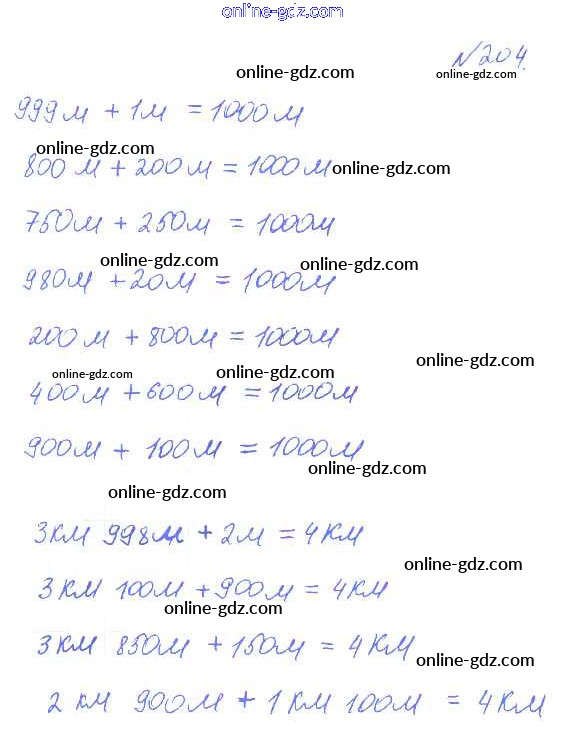 online-gdz.com
№204.
online-gdz.com
online-gdz.com
999м + 1м = 1000м
online-gdz.com
800 м + 200м = 1000м
online-gdz.com
750м + 250м = 1000м
online-gdz.com
online-gdz.com
980м + 20м = 1000м
200м + 800м = 1000м
online-gdz.com
online-gdz.com
online-gdz.com
400м + 600м = 1000м
900м + 100м = 1000м
online-gdz.com
online-gdz.com
3км 998м + 2м = 4км
online-gdz.com
3км 100м + 900м = 4км
online-gdz.com
3км 850м + 150м = 4км
online-gdz.com
2 км 900м + 1км 100м = 4км